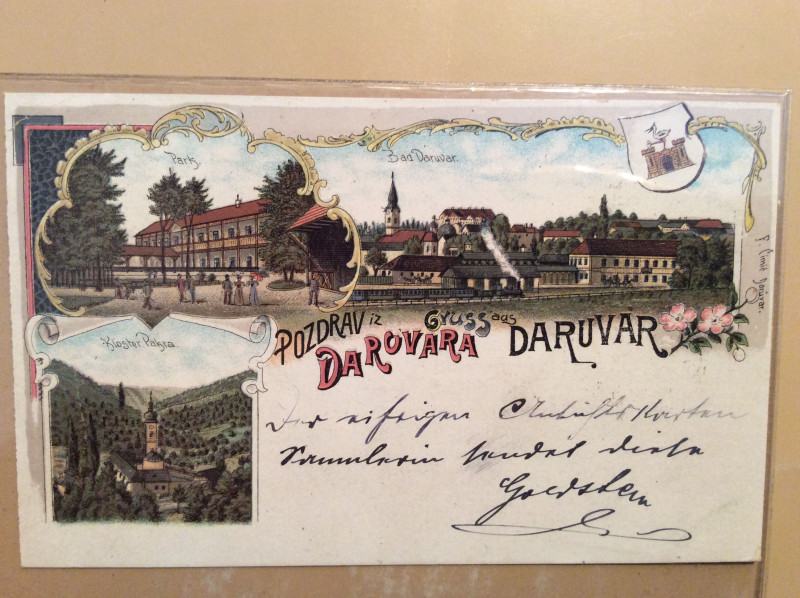 Park.
Bad Daruvar.
Kloster Pakra
POZDRAV iz DARUVARA
Gruss aus DARUVAR
Der eifrigen Ansichtskarten
Sammlerin sendet diese
Goldstein